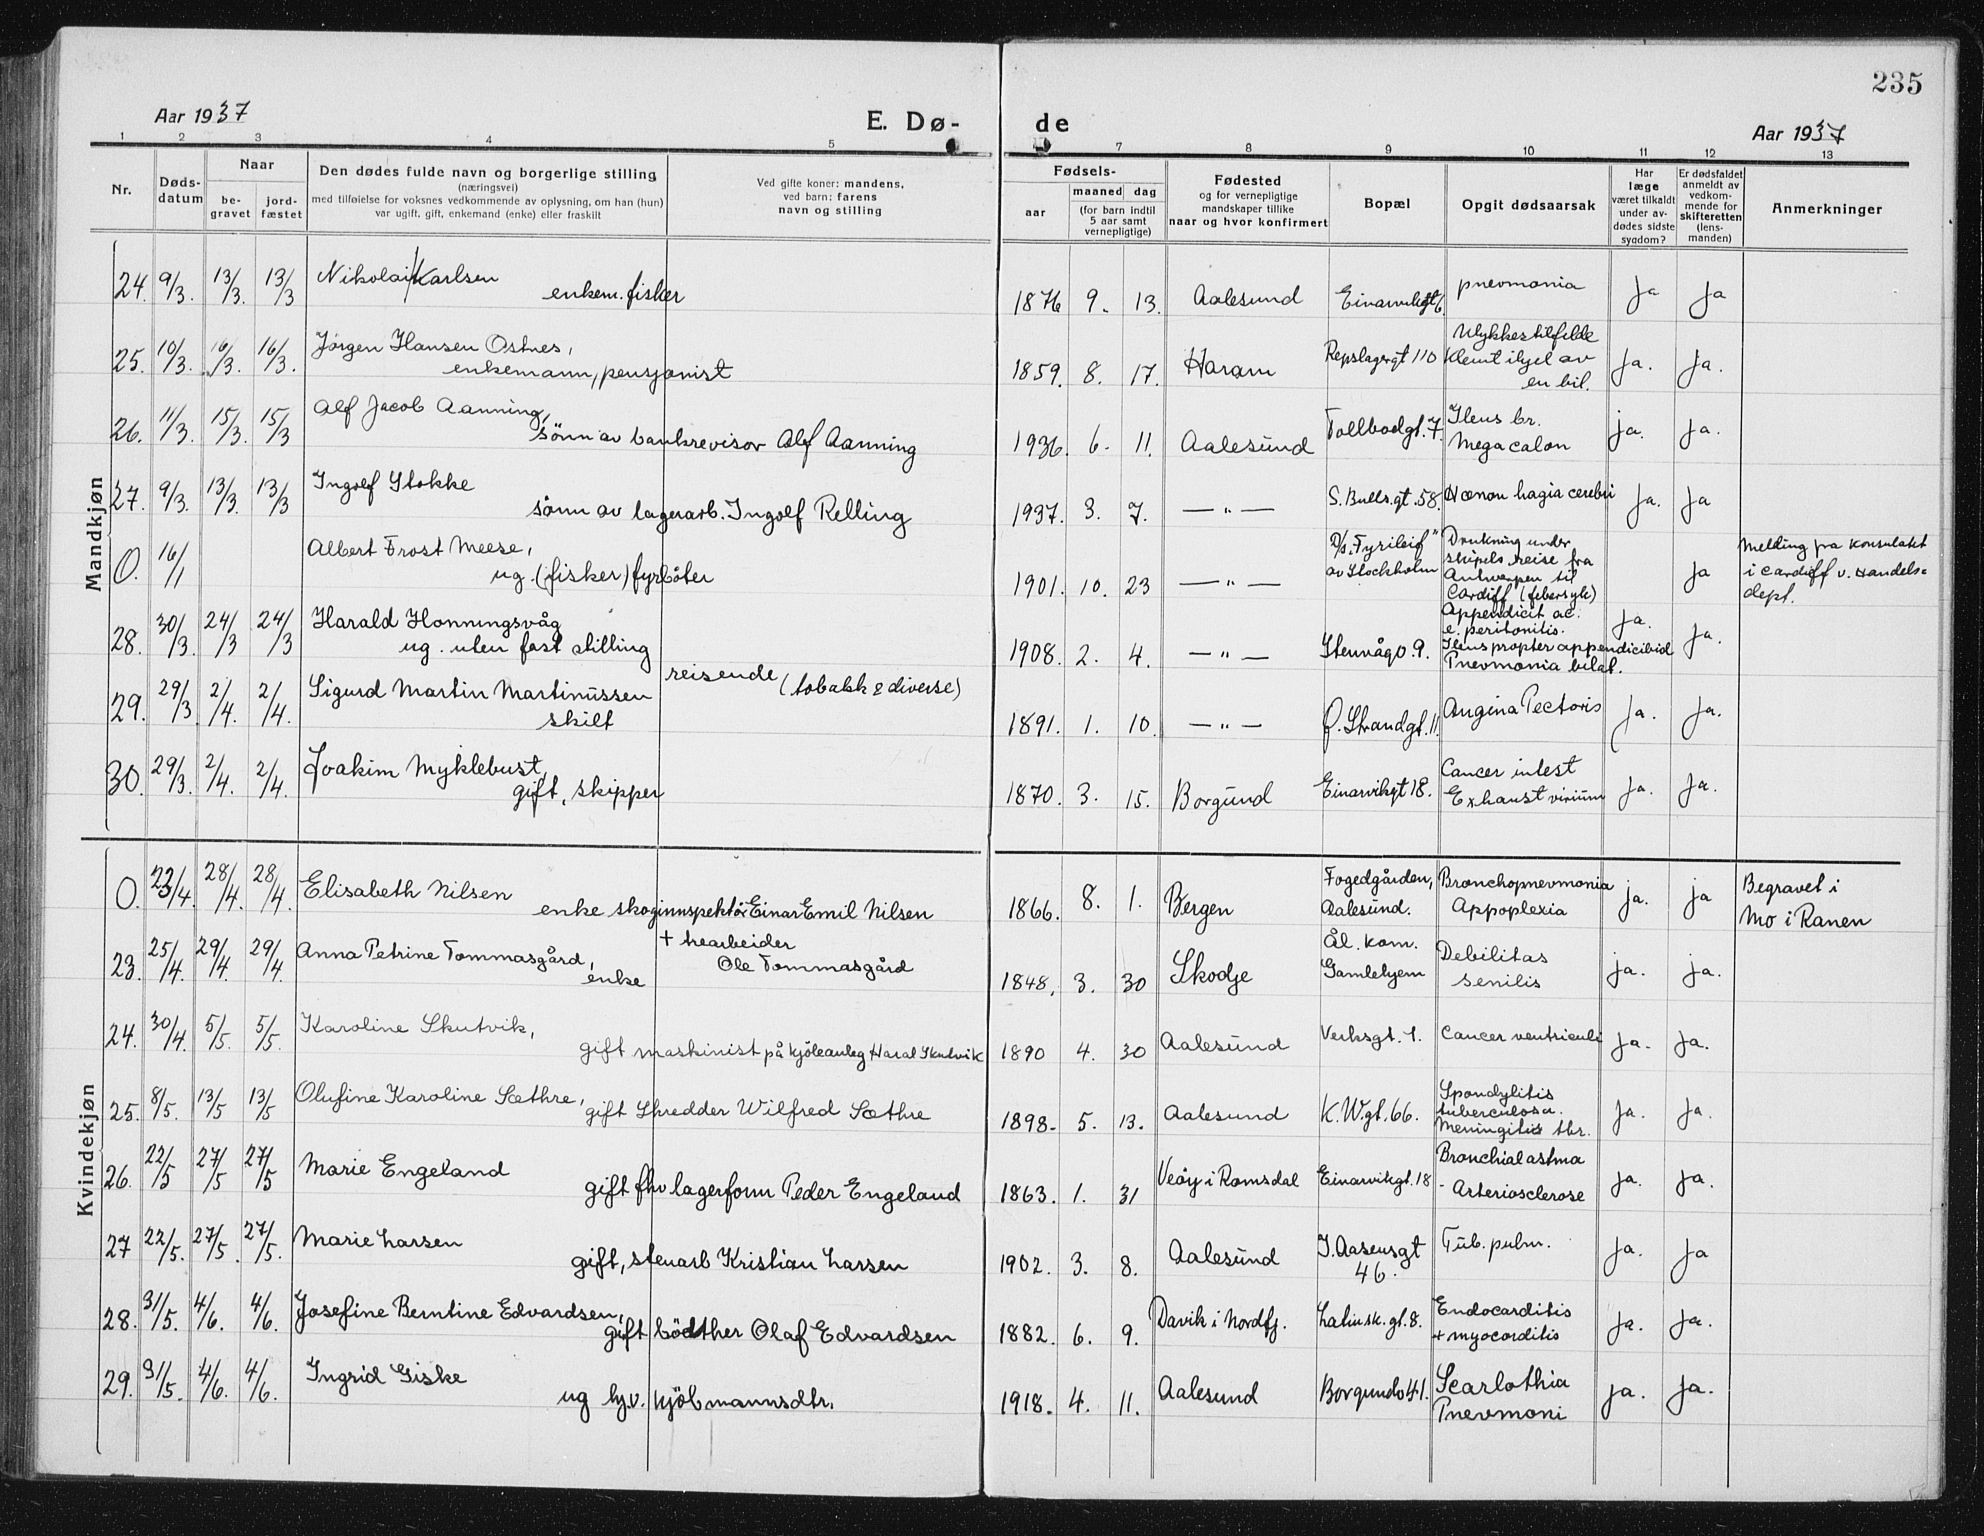 235
Aar 1937 E. Dø- de Aar 1937
1 2 3 4 5 7 8 9 10 11 12 13
Nr.
Døds-
datum
Naar
be-
gravet
jord-
fæstet
Den dødes fulde navn og borgerlige stilling
(næringsvei)
med tilføielse for voksnes vedkommende av oplysning, om han (hun)
var ugift, gift, enkemand (enke) eller fraskilt
Ved gifte koner: mandens,
ved barn: farens
navn og stilling
Fødsels-
aar
maaned dag
(for barn indtil
5 aar samt
vernepligtige)
Fødested
og for vernepligtige
mandskaper tillike
naar og hvor konfirmert
Bopæl
Opgit dødsaarsak
Har
læge
været tilkaldt
under av-
dødes sidste
sygdom?
Er dødsfaldet
anmeldt av
vedkom-
mende for
skifteretten
(lens-
manden)
Anmerkninger
Mandkjøn
24. 9/3. 13/3. 13/3 Nikolai Karlsen
enkem. fisker
1876 9. 13. Aalesund Einarvikgt 6. pnevmonia ja ja
25. 10/3. 16/3. 16/3. Jørgen Hansen Ostnes,
enkemann, pensjonist
1859. 8. 17. Haram Repslagergt 110 Ulykkestilfelde
klemt ihjel av
en bil. ja. ja.
26. 11/3. 15/3. 15/3 Alf Jacob Aanning,
sønn av bankrevisor Alf Aanning
1936. 6. 11. Aalesund Tollbodgt. 7. Ileus br.
Megacalon ja. ja.
27. 9/3. 13/3. 13/3 Ingolf Stokke
sønn av lagerarb. Ingolf Relling
1937. 3. 7. — „ — S. Bullsgt. 58. Hæmorrhagia cerebri ja. ja
0. 16/1 Albert Frost Meese,
ug. (fisker) fyrbøter
1901. 10. 23 — „ — D/s. "Fyrileif"
av Stockholm Drukning under
skipets reise fra
Antwerpen til
Cardiff (febersyk) ja Melding fra konsulatet
i Cardiff v. Handels=
dept.
28. 30/3. 24/3 24/3 Harald Honningsvåg
ug. uten fast stilling
1908. 2. 4. — „ — Stenvågo. 9. Appendicit ac.
e. peritonitis.
Ileus propter appendicibid
Pnevmonia bilat. ja. ja.
29. 29/3 2/4. 2/4. Sigurd Martin Martinussen
skilt
reisende (tobakk & diverse)
1891. 1. 10. — „ — Ø. Strandgt. 11. Angina Pectoris ja. ja.
30. 29/3. 2/4. 2/4. Joakim Myklebust,
gift, skipper
1870. 3. 15. Borgund Einarvikgt 18. Cancer intest
Exhaust virium ja. ja.
Kvindekjøn
0. 23/4. 28/4. 28/4. Elisabeth Nilsen
enke skoginnspektør Einar Emil Nilsen
1866. 8. 1. Bergen Fogedgården,
Aalesund. Bronchopnevmonia
Appoplexia ja. ja Begravet i
Mo i Ranen
23. 25/4. 29/4. 29/4. Anna Petrine Tommasgård,
enke
+ trearbeider
Ole Tommasgård
1848. 3. 30 Skodje Ål. kom.
Gamlehjem Debilitas
senilis ja. ja.
24. 30/4. 5/5. 5/5. Karoline Skutvik,
gift maskinist på kjøleanleg Haral Skutvik
1890 4. 30 Aalesund Verksgt. 1. Cancer ventriculi ja. ja.
25. 8/5. 13/5 13/5 Olufine Karoline Sæthre,
gift Skredder Wilfred Sæthre
1898. 5. 13. Aalesund K. W.gt. 66. Spondylitis
tuberculosa.
Meningitis tbr. ja. ja.
26. 22/5 27/5 27/5 Marie Engeland
gift fhv lagerform Peder Engeland
1863. 1. 31 Veøy i Romsdal Einarvikgt. 18 Bronchialastma
- Arteriosclerose ja. ja.
27 22/5. 27/5. 27/5. Marie Larsen
gift, stenarb Kristian Larsen
1902. 3. 8. Aalesund I. Aasensgt
46. Tub. pulm. ja. ja
28. 31/5. 4/6. 4/6. Josefine Berntine Edvardsen,
gift bødtker Olaf Edvardsen
1882. 6. 9. Davik i Nordfj. Latinsk.gt. 8. Endocarditis
+ myocarditis ja. ja.
29. 31/5. 4/6. 4/6. Ingrid Giske
ug hjv. kjøbmannsdtr.
1918. 4. 11. Aalesund Borgundv 41. Scarlathia
Pnevmoni ja. ja.